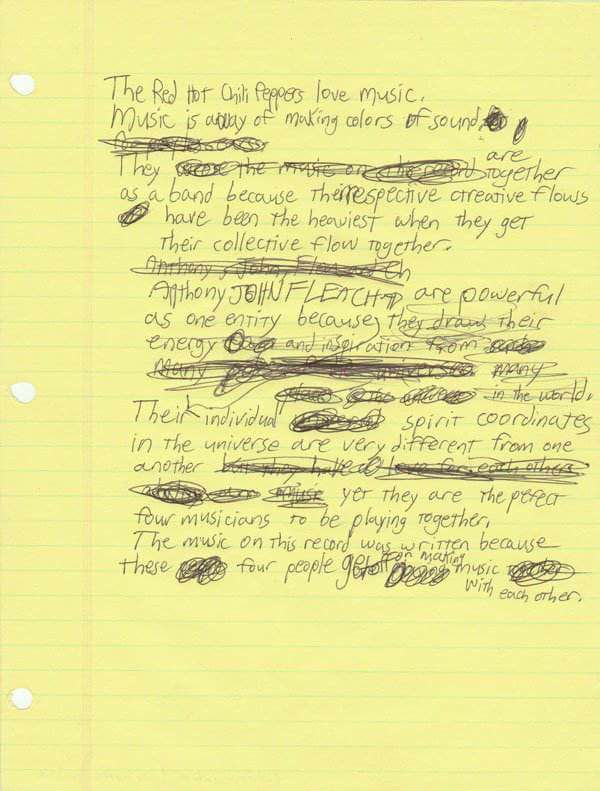 The Red Hot Chili Peppers love music.
Music is a way of making colors of sound.
are
They together
as a band because their respective creative flows
have been the heaviest when they get
their collective flow together.
Anthony, John, Flea and Ch
Anthony JOHN FLEA CHAD are powerful
as one entity because, they draw their
energy and inspiration from
many universes many
in the world.
Their individual spirit coordinates
in the universe are very different from one
another but they have a love for each others
music yet they are the perfect
four musicians to be playing together.
The music on this record was written because
these four people get off on making music
with each other.